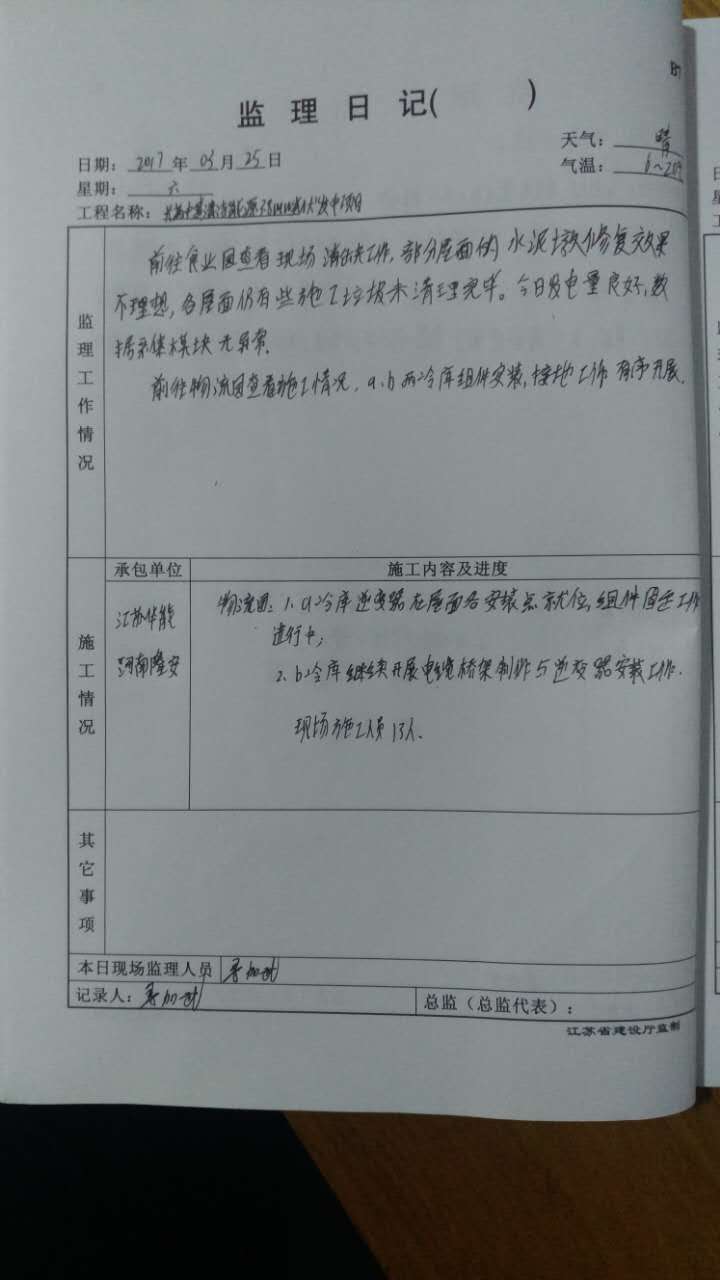 监 理 日 记( )
日期: 2017 年 03 月 25 日
天气: 晴
星期: 六
气温: 6~20
工程名称: 发电项目
监理工作情况
前往食业园查看现场消缺工作,部分屋面的水泥墩修复效果
不理想,各屋面仍有些施工垃圾未清理完毕。今日发电量良好,数
据采集模块无异常.
前往物流园查看施工情况, a、b两冷库组件安装,接地工作有序开展.
施工情况
承包单位
施工内容及进度
江苏华能
河南隆安
物流园: 1. a冷库逆变器在屋面各安装点就位,组件固定工作
进行中;
2. b冷库继续开展电缆桥架制作与逆变器安装工作.
现场施工人员13人.
其它事项
本日现场监理人员
记录人:
总监(总监代表):
江苏省建设厅监制